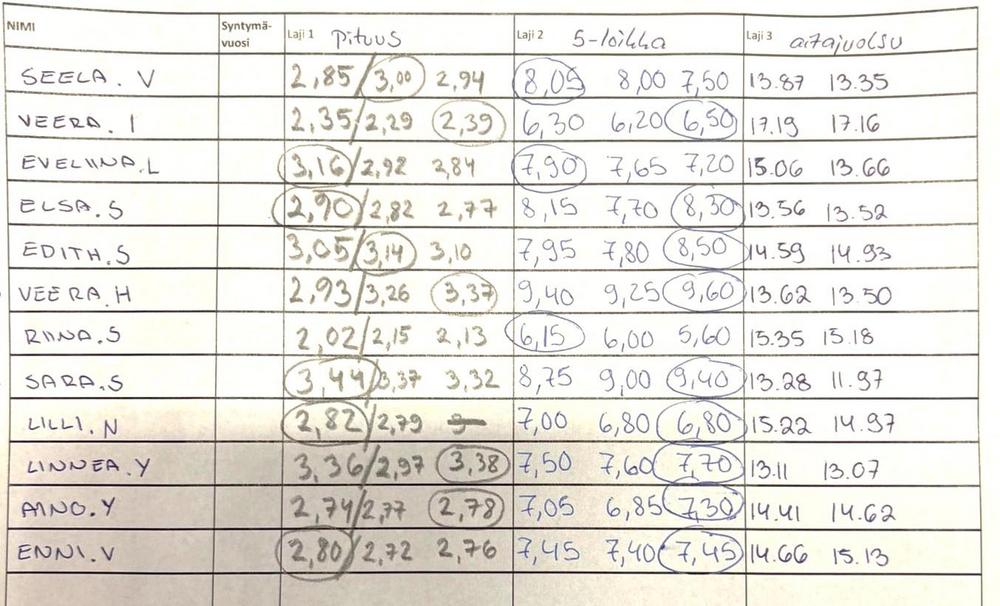 NIMI Syntymä- vuosi Laji 1 Pituus Laji 2 5-loikka Laji 3 aitajuoksu
SEELA. V 2,85/3,00 2,94 8,05 8,00 7,50 13.87 13.35
VEERA. I 2,35/2,29 2,39 6,30 6,20 6,50 17.19 17.16
EVELIINA.L 3,16/2,92 2,84 7,90 7,65 7,20 15.06 13.66
ELSA.S 2,90/2,82 2,77 8,15 7,70 8,30 13.56 13.52
EDITH.S 3,05/3,14 3,10 7,95 7,80 8,50 14.59 14.93
VEERA.H 2,93/3,26 3,37 9,40 9,25 9,60 13.62 13.50
RIINA.S 2,02/2,15 2,13 6,15 6,00 5,60 15.35 15.18
SARA.S 3,44/3,37 3,32 8,75 9,00 9,40 13.28 11.97
LILLI.N 2,82/2,79 7,00 6,80 6,80 15.22 14.97
LINNEA.Y 3,36/2,97 3,38 7,50 7,60 7,70 13.11 13.07
AINO.Y 2,74/2,77 2,78 7,05 6,85 7,30 14.41 14.62
ENNI.V 2,80/2,72 2,76 7,45 7,40 7,45 14.66 15.13